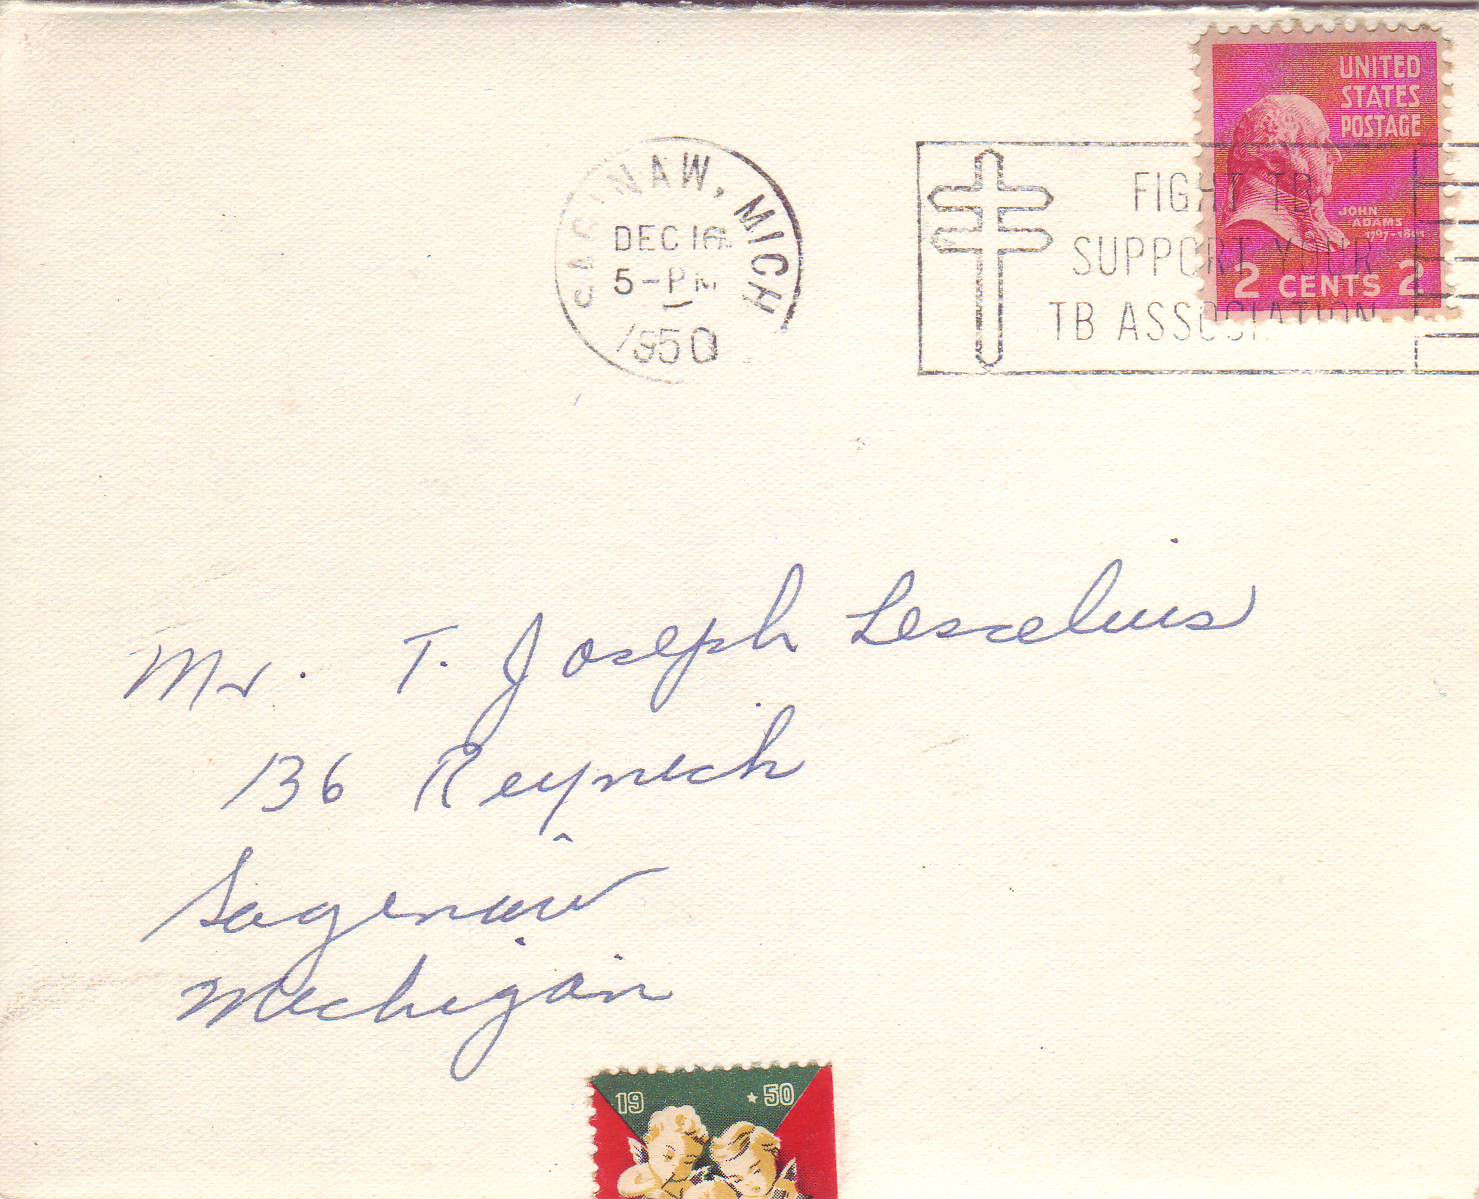 UNITED
STATES
POSTAGE
JOHN
ADAMS
1797-1801
2 CENTS 2
SAGINAW, MICH
DEC 16
5-PM
1950
FIGHT TB
SUPPORT YOUR
TB ASSOCIATION
Mr. T. Joseph Lescelius
136 Reynick
Saginaw
Michigan
19 50